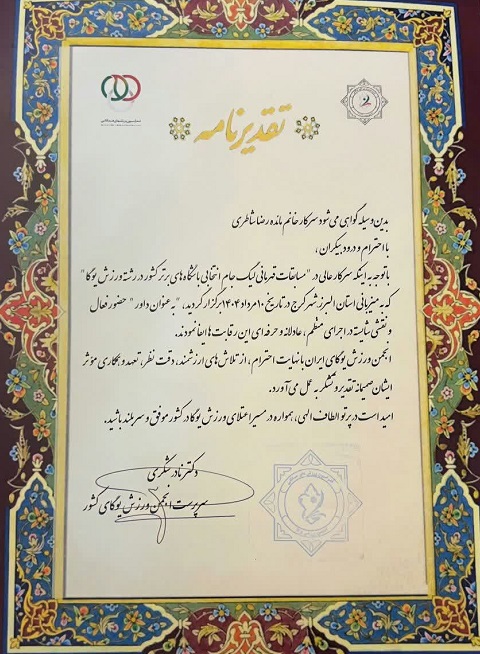 تقدیرنامه
بدین وسیله گواهی می شود سرکار خانم مائده رضا شاطری
با احترام و درود بیکران ،
با توجه به اینکه سرکار عالی در "مسابقات قهرمانی لیگ جام انتخابی باشگاه های برتر کشور در رشته ورزش یوگا"
که به میزبانی استان البرز شهر کرج در تاریخ ۱۰ مرداد ۱۴۰۴ برگزار گردید، "به عنوان داور" حضور فعال
و نقشی شایسته در اجرای منظم ، عادلانه و حرفه ای این رقابت ها ایفا نمودند.
انجمن ورزش یوگای ایران با نهایت احترام ، از تلاش های ارزشمند، دقت نظر، تعهد و همکاری مؤثر
ایشان صمیمانه تقدیر و تشکر به عمل می آورد.
امید است در پرتو الطاف الهی، همواره در مسیر اعتلای ورزش یوگا در کشور موفق و سربلند باشید.
دکتر نادر شکری
سرپرست انجمن ورزش یوگای کشور